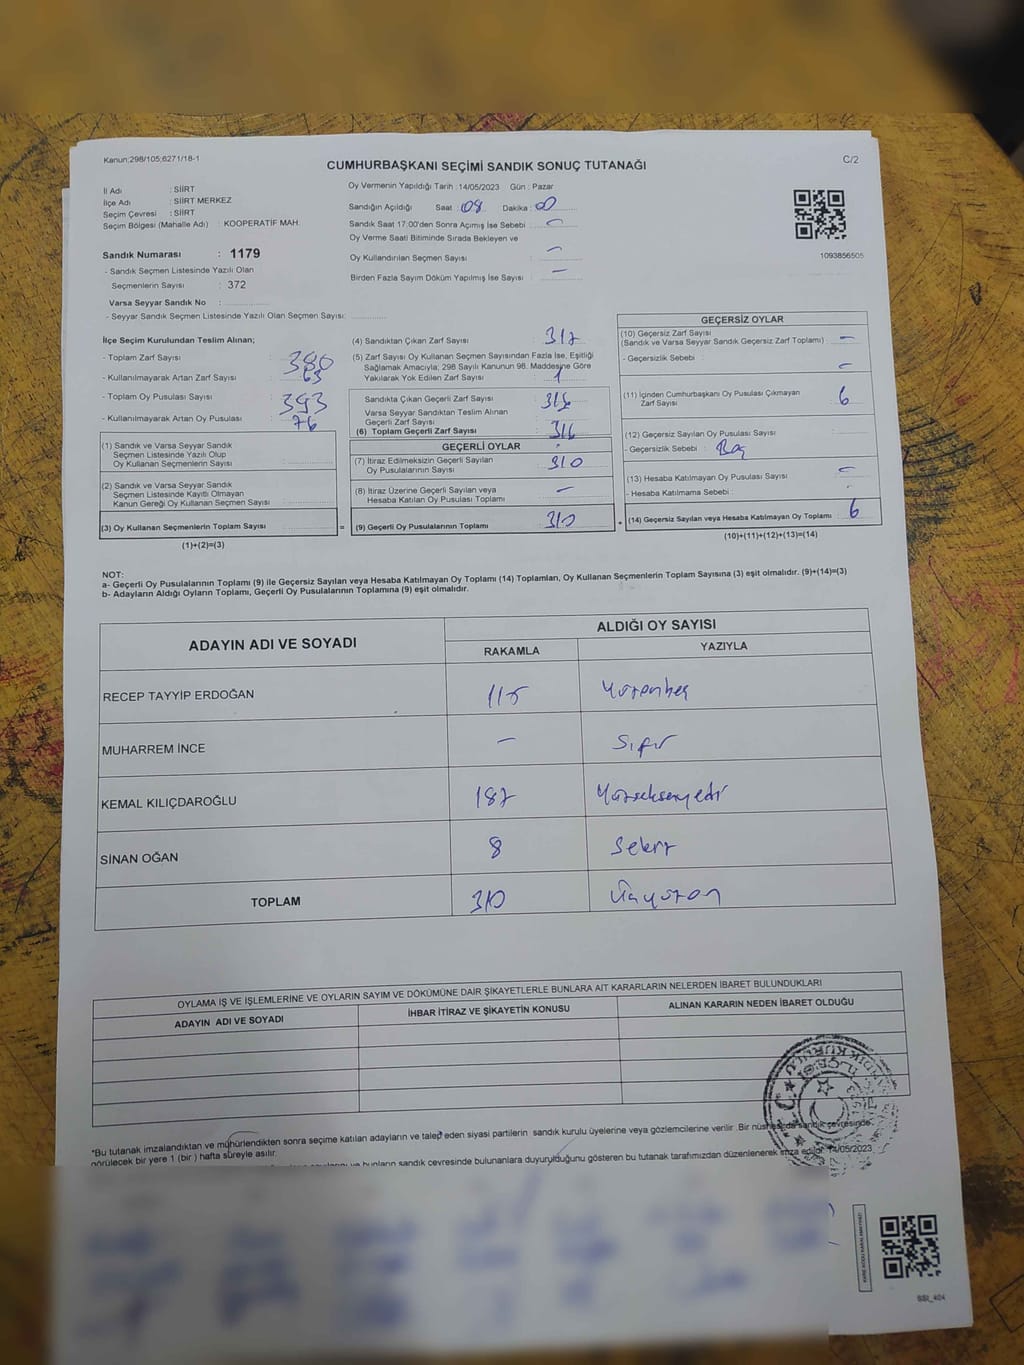 Kanun;298/105;6271/18-1
CUMHURBAŞKANI SEÇİMİ SANDIK SONUÇ TUTANAĞI
C/2
İl Adı : SİİRT
İlçe Adı : SİİRT MERKEZ
Seçim Çevresi : SİİRT
Seçim Bölgesi (Mahalle Adı) : KOOPERATİF MAH.
Oy Vermenin Yapıldığı Tarih : 14/05/2023 Gün : Pazar
Sandığın Açıldığı Saat : 08 Dakika : 00
Sandık Saat 17:00'den Sonra Açımış İse Sebebi : -
Oy Verme Saati Bitiminde Sırada Bekleyen ve
Oy Kullandırılan Seçmen Sayısı : -
Birden Fazla Sayım Döküm Yapılmış İse Sayısı : -
1093856505
Sandık Numarası : 1179
- Sandık Seçmen Listesinde Yazılı Olan
Seçmenlerin Sayısı : 372
Varsa Seyyar Sandık No :
- Seyyar Sandık Seçmen Listesinde Yazılı Olan Seçmen Sayısı:
İlçe Seçim Kurulundan Teslim Alınan;
- Toplam Zarf Sayısı : 380
- Kullanılmayarak Artan Zarf Sayısı : 63
- Toplam Oy Pusulası Sayısı : 393
- Kullanılmayarak Artan Oy Pusulası : 76
(1) Sandık ve Varsa Seyyar Sandık
Seçmen Listesinde Yazılı Olup
Oy Kullanan Seçmenlerin Sayısı :
(2) Sandık ve Varsa Seyyar Sandık
Seçmen Listesinde Kayıtlı Olmayan
Kanun Gereği Oy Kullanan Seçmen Sayısı :
(3) Oy Kullanan Seçmenlerin Toplam Sayısı :
=
(1)+(2)=(3)
(4) Sandıktan Çıkan Zarf Sayısı : 317
(5) Zarf Sayısı Oy Kullanan Seçmen Sayısından Fazla İse, Eşitliği
Sağlamak Amacıyla; 298 Sayılı Kanunun 98. Maddesine Göre
Yakılarak Yok Edilen Zarf Sayısı : 1
Sandıkta Çıkan Geçerli Zarf Sayısı : 316
Varsa Seyyar Sandıktan Teslim Alınan
Geçerli Zarf Sayısı :
(6) Toplam Geçerli Zarf Sayısı : 316
GEÇERLİ OYLAR
(7) İtiraz Edilmeksizin Geçerli Sayılan
Oy Pusulalarının Sayısı : 310
(8) İtiraz Üzerine Geçerli Sayılan veya
Hesaba Katılan Oy Pusulası Toplamı : -
(9) Geçerli Oy Pusulalarının Toplamı : 310
+
GEÇERSİZ OYLAR
(10) Geçersiz Zarf Sayısı
(Sandık ve Varsa Seyyar Sandık Geçersiz Zarf Toplamı) : -
- Geçersizlik Sebebi : -
(11) İçinden Cumhurbaşkanı Oy Pusulası Çıkmayan
Zarf Sayısı : 6
(12) Geçersiz Sayılan Oy Pusulası Sayısı :
- Geçersizlik Sebebi : Boş
(13) Hesaba Katılmayan Oy Pusulası Sayısı : -
- Hesaba Katılmama Sebebi :
(14) Geçersiz Sayılan veya Hesaba Katılmayan Oy Toplamı : 6
(10)+(11)+(12)+(13)=(14)
NOT:
a- Geçerli Oy Pusulalarının Toplamı (9) ile Geçersiz Sayılan veya Hesaba Katılmayan Oy Toplamı (14) Toplamları, Oy Kullanan Seçmenlerin Toplam Sayısına (3) eşit olmalıdır. (9)+(14)=(3)
b- Adayların Aldığı Oyların Toplamı, Geçerli Oy Pusulalarının Toplamına (9) eşit olmalıdır.
ADAYIN ADI VE SOYADI
ALDIĞI OY SAYISI
RAKAMLA YAZIYLA
RECEP TAYYİP ERDOĞAN 115 Yüzonbeş
MUHARREM İNCE - Sıfır
KEMAL KILIÇDAROĞLU 187 Yüzseksenyedi
SİNAN OĞAN 8 Sekiz
TOPLAM 310 Üçyüzon
OYLAMA İŞ VE İŞLEMLERİNE VE OYLARIN SAYIM VE DÖKÜMÜNE DAİR ŞİKAYETLERLE BUNLARA AİT KARARLARIN NELERDEN İBARET BULUNDUKLARI
ADAYIN ADI VE SOYADI İHBAR İTİRAZ VE ŞİKAYETİN KONUSU ALINAN KARARIN NEDEN İBARET OLDUĞU
*Bu tutanak imzalandıktan ve mühürlendikten sonra seçime katılan adayların ve talep eden siyasi partilerin sandık kurulu üyelerine veya gözlemcilerine verilir. Bir nüshası da sandık çevresinde
görülecek bir yere 1 (bir) hafta süreyle asılır.
ve bunların sandık çevresinde bulunanlara duyurulduğunu gösteren bu tutanak tarafımızdan düzenlenerek imza edildi. 14/05/2023